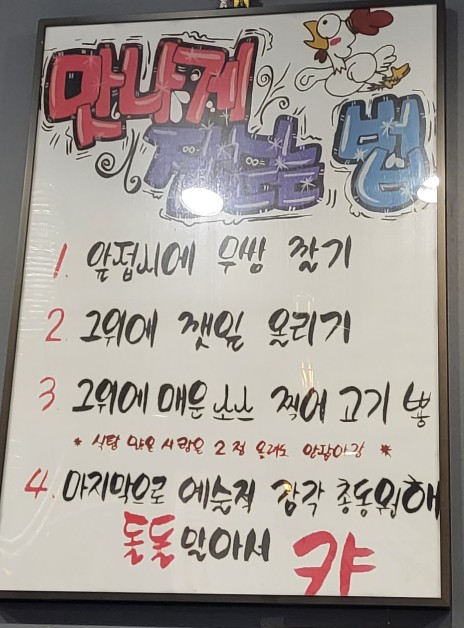 만나게
접는 법
1. 앞접시에 무쌈 깔기
2. 그위에 깻잎 올리기
3. 그위에 매운 소스 찍어 고기 뿅
* 식탐 많은 사람은 2점 올려도 안잡아감 *
4. 마지막으로 예술적 감각 총동원해
돌돌 말아서 캬